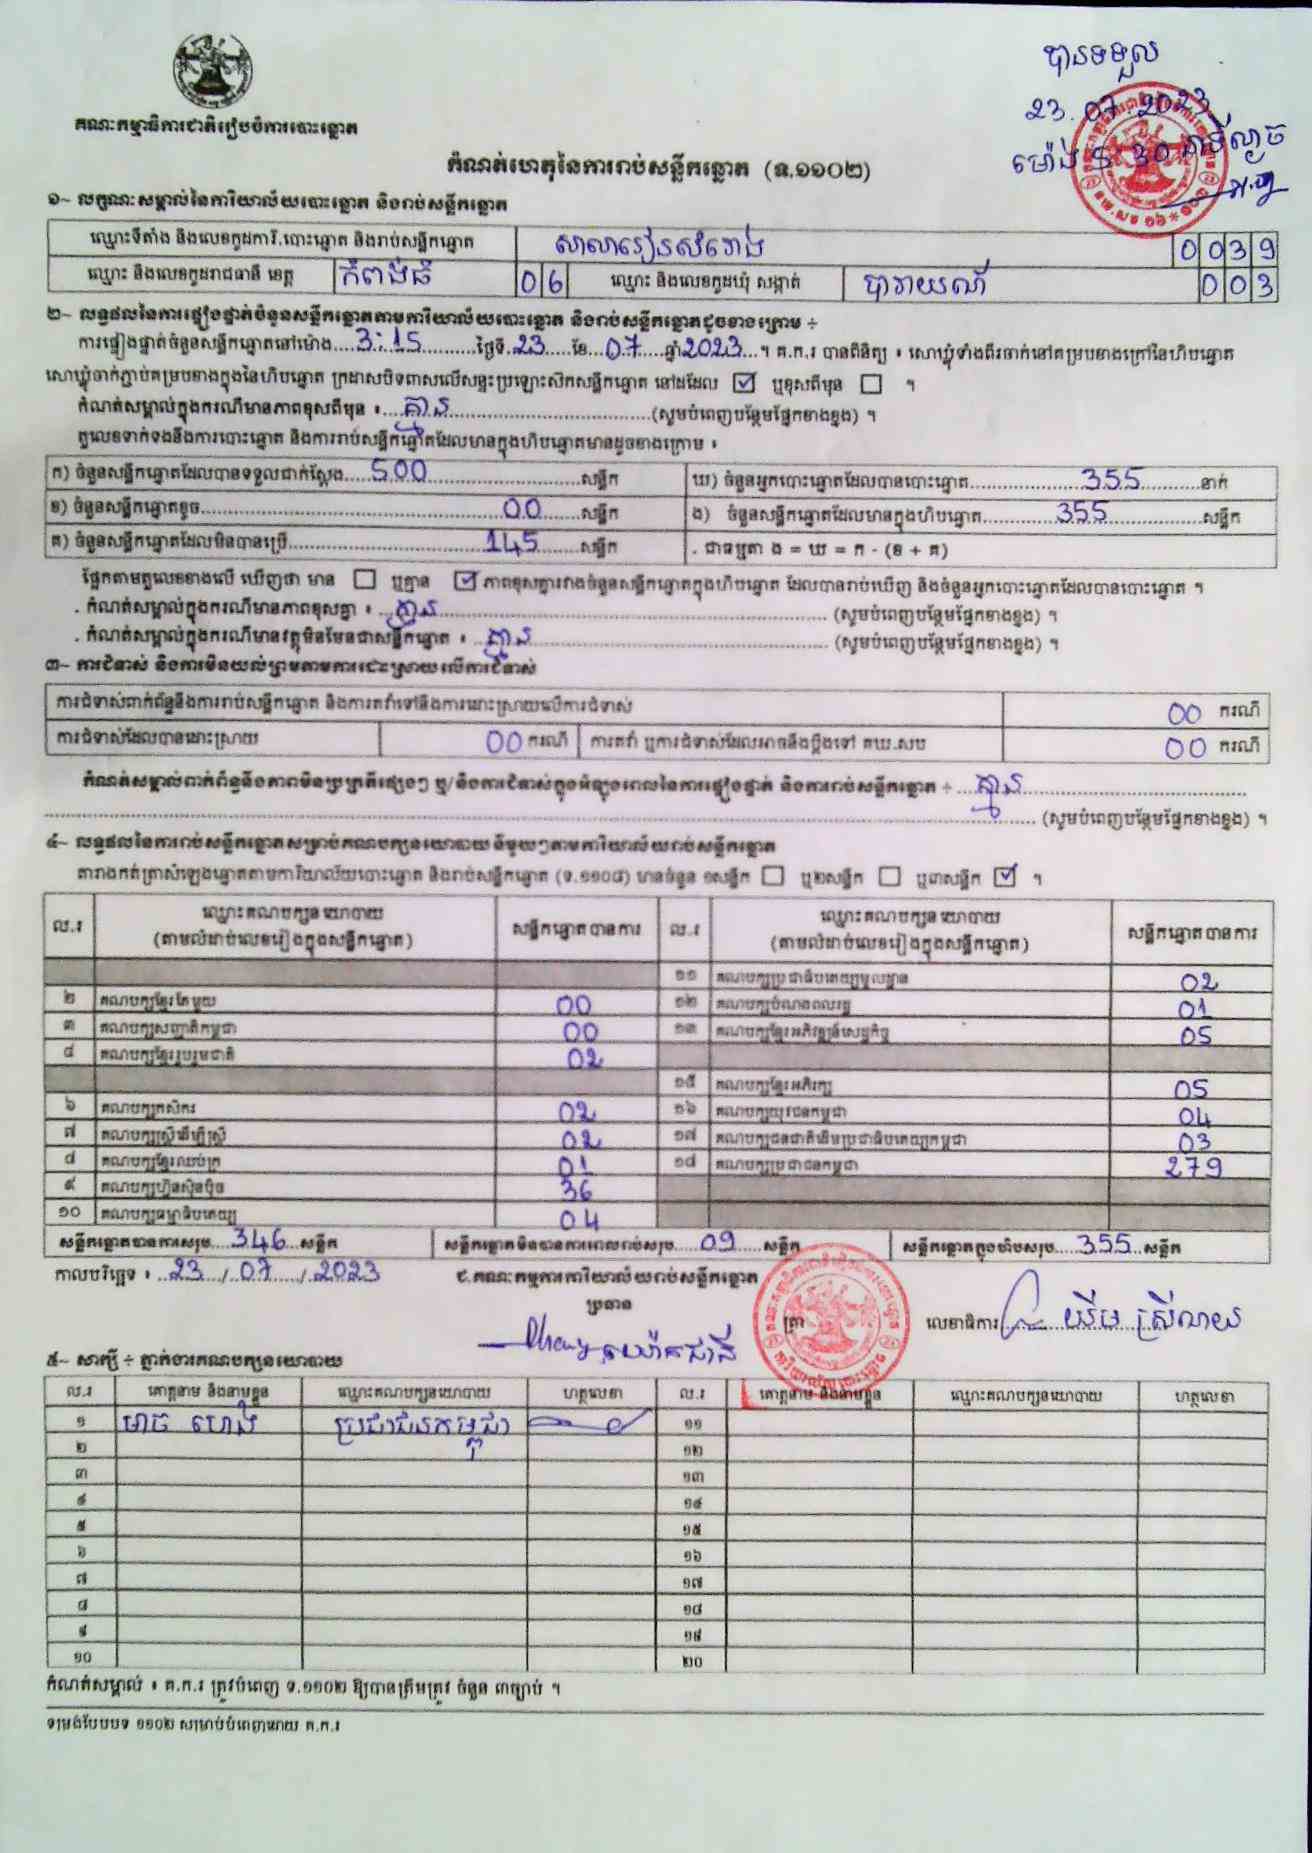 បានទទួល
23.07.2023
ម៉ោង 5:30 នាទីល្ងាច
គណៈកម្មាធិការជាតិរៀបចំការបោះឆ្នោត
កំណត់ហេតុនៃការរាប់សន្លឹកឆ្នោត (ទ.១១០២)
១~ លក្ខណៈសម្គាល់នៃការិយាល័យបោះឆ្នោត និងរាប់សន្លឹកឆ្នោត
ឈ្មោះទីតាំង និងលេខកូដការិ.បោះឆ្នោត និងរាប់សន្លឹកឆ្នោត សាលារៀនសំរោង 0039
ឈ្មោះ និងលេខកូដរាជធានី ខេត្ត កំពង់ធំ 06 ឈ្មោះ និងលេខកូដឃុំ សង្កាត់ បារាយណ៍ 003
២~ លទ្ធផលនៃការផ្ទៀងផ្ទាត់ចំនួនសន្លឹកឆ្នោតតាមការិយាល័យបោះឆ្នោត និងរាប់សន្លឹកឆ្នោតដូចខាងក្រោម ÷
ការផ្ទៀងផ្ទាត់ចំនួនសន្លឹកឆ្នោតនៅម៉ោង....3:15............ថ្ងៃទី.23......ខែ...07....ឆ្នាំ2023...។ គ.ក.រ បានពិនិត្យ ៖ សោឃ្លុំទាំងពីរចាក់នៅគម្របខាងក្រៅនៃហិបឆ្នោត
សោឃ្លុំចាក់ភ្ជាប់គម្របខាងក្នុងនៃហិបឆ្នោត ក្រដាសបិទពាសលើសន្ទះប្រឡោះសិកសន្លឹកឆ្នោត នៅដដែល ☑ ឬខុសពីមុន ☐ ។
កំណត់សម្គាល់ក្នុងករណីមានភាពខុសពីមុន ៖...គ្មាន..................................(សូមបំពេញបន្ថែមផ្នែកខាងខ្នង) ។
តួលេខទាក់ទងនឹងការបោះឆ្នោត និងការរាប់សន្លឹកឆ្នោតដែលមានក្នុងហិបឆ្នោតមានដូចខាងក្រោម ៖
ក) ចំនួនសន្លឹកឆ្នោតដែលបានទទួលជាក់ស្តែង.....500..............................សន្លឹក ឃ) ចំនួនអ្នកបោះឆ្នោតដែលបានបោះឆ្នោត......................355............នាក់
ខ) ចំនួនសន្លឹកឆ្នោតខូច.....................................................00.......សន្លឹក ង) ចំនួនសន្លឹកឆ្នោតដែលមានក្នុងហិបឆ្នោត...............355...................សន្លឹក
គ) ចំនួនសន្លឹកឆ្នោតដែលមិនបានប្រើ.....................................145........សន្លឹក . ជាធម្មតា ង = ឃ = ក - (ខ + គ)
ផ្អែកតាមតួលេខខាងលើ ឃើញថា មាន ☐ ឬគ្មាន ☑ ភាពខុសគ្នារវាងចំនួនសន្លឹកឆ្នោតក្នុងហិបឆ្នោត ដែលបានរាប់ឃើញ និងចំនួនអ្នកបោះឆ្នោតដែលបានបោះឆ្នោត ។
. កំណត់សម្គាល់ក្នុងករណីមានភាពខុសគ្នា ៖ ...គ្មាន........................................................... (សូមបំពេញបន្ថែមផ្នែកខាងខ្នង) ។
. កំណត់សម្គាល់ក្នុងករណីមានវត្ថុមិនមែនជាសន្លឹកឆ្នោត ៖ ...គ្មាន........................................... (សូមបំពេញបន្ថែមផ្នែកខាងខ្នង) ។
៣~ ការជំទាស់ និងការមិនយល់ព្រមតាមការដោះស្រាយ លើការជំទាស់
ការជំទាស់ពាក់ព័ន្ធនឹងការរាប់សន្លឹកឆ្នោត និងការតវ៉ាទៅនឹងការដោះស្រាយលើការជំទាស់ 00 ករណី
ការជំទាស់ដែលបានដោះស្រាយ 00 ករណី ការតវ៉ា ឬការជំទាស់ដែលអាចនឹងប្តឹងទៅ គឃ.សប 00 ករណី
កំណត់សម្គាល់ពាក់ព័ន្ធនឹងភាពមិនប្រក្រតីផ្សេងៗ ឬ/និងការជំទាស់ក្នុងអំឡុងពេលនៃការផ្ទៀងផ្ទាត់ និងការរាប់សន្លឹកឆ្នោត ÷ ...គ្មាន....................................
.................................................................................................................................................... (សូមបំពេញបន្ថែមផ្នែកខាងខ្នង) ។
៤~ លទ្ធផលនៃការរាប់សន្លឹកឆ្នោតសម្រាប់គណបក្សនយោបាយនីមួយៗតាមការិយាល័យរាប់សន្លឹកឆ្នោត
តារាងកត់ត្រាសំឡេងឆ្នោតតាមការិយាល័យបោះឆ្នោត និងរាប់សន្លឹកឆ្នោត (ទ.១១០៨) មានចំនួន ១សន្លឹក ☐ ឬ២សន្លឹក ☐ ឬ៣សន្លឹក ☑ ។
ល.រ ឈ្មោះគណបក្សនយោបាយ (តាមលំដាប់លេខរៀងក្នុងសន្លឹកឆ្នោត) សន្លឹកឆ្នោតបានការ ល.រ ឈ្មោះគណបក្សនយោបាយ (តាមលំដាប់លេខរៀងក្នុងសន្លឹកឆ្នោត) សន្លឹកឆ្នោតបានការ
១១ គណបក្សប្រជាធិបតេយ្យមូលដ្ឋាន 02
២ គណបក្សខ្មែរតែមួយ 00 ១២ គណបក្សបំណងពលរដ្ឋ 01
៣ គណបក្សសញ្ជាតិកម្ពុជា 00 ១៣ គណបក្សខ្មែរអភិវឌ្ឍន៍សេដ្ឋកិច្ច 05
៤ គណបក្សខ្មែររួបរួមជាតិ 02
១៥ គណបក្សខ្មែរអភិរក្ស 05
៦ គណបក្សកសិករ 02 ១៦ គណបក្សយុវជនកម្ពុជា 04
៧ គណបក្សស្ត្រីដើម្បីស្ត្រី 02 ១៧ គណបក្សជនជាតិដើមប្រជាធិបតេយ្យកម្ពុជា 03
៨ គណបក្សខ្មែរឈប់ក្រ 01 ១៨ គណបក្សប្រជាជនកម្ពុជា 279
៩ គណបក្សហ៊្វុនស៊ិនប៉ិច 36
១០ គណបក្សធម្មាធិបតេយ្យ 04
សន្លឹកឆ្នោតបានការសរុប...346...សន្លឹក សន្លឹកឆ្នោតមិនបានការពេលរាប់សរុប.....09.....សន្លឹក សន្លឹកឆ្នោតក្នុងហិបសរុប.....355...សន្លឹក
កាលបរិច្ឆេទ ៖...23..../07....../..2023 ជ.គណៈកម្មការការិយាល័យរាប់សន្លឹកឆ្នោត
ប្រធាន
ត្រា
លេខាធិការ
៥~ សាក្សី ÷ ភ្នាក់ងារគណបក្សនយោបាយ
ល.រ គោត្តនាម និងនាមខ្លួន ឈ្មោះគណបក្សនយោបាយ ហត្ថលេខា ល.រ គោត្តនាម និងនាមខ្លួន ឈ្មោះគណបក្សនយោបាយ ហត្ថលេខា
១ មាច ហេង ប្រជាជនកម្ពុជា ១១
២ ១២
៣ ១៣
៤ ១៤
៥ ១៥
៦ ១៦
៧ ១៧
៨ ១៨
៩ ១៩
១០ ២០
កំណត់សម្គាល់ ៖ គ.ក.រ ត្រូវបំពេញ ទ.១១០២ ឱ្យបានត្រឹមត្រូវ ចំនួន ៣ច្បាប់ ។
ទម្រង់បែបបទ ១១០២ សម្រាប់បំពេញដោយ គ.ក.រ